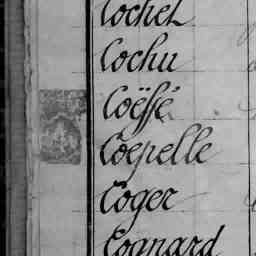 Cochet
Cochu
Coëssé
Coepelle
Coger
Cognard